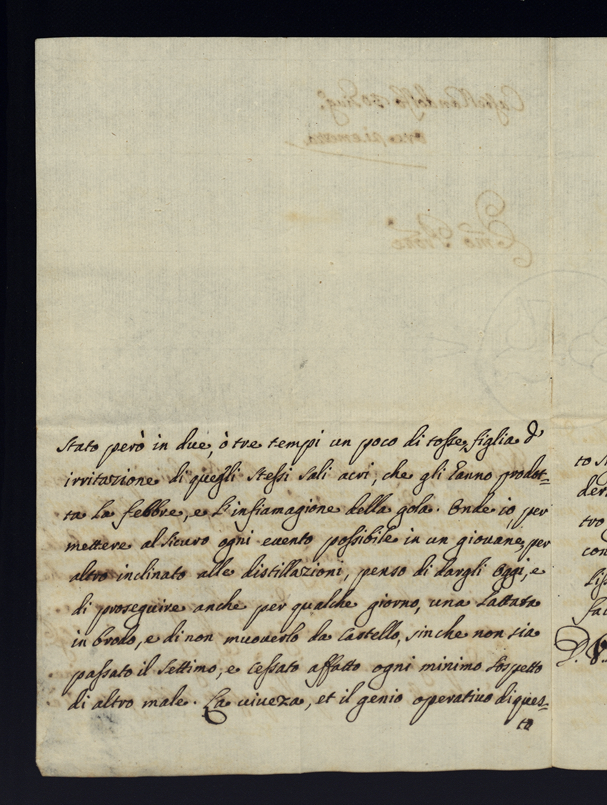 stato però in due, ò tre tempi un poco di tosse, figlia d'
irritazione di quegli stessi sali acri, che gli hanno prodot=
ta la febbre, e l'infiamagione della gola. Onde io per
mettere al sicuro ogni evento possibile in un giovane, per
altro inclinato alle distillazioni, penso di dargli oggi, e
di proseguire anche per qualche giorno, una lattata
in brodo, e di non muoverlo da Castello, sinche non sia
passato il settimo, e cessato affatto ogni minimo sospetto
di altro male. La viveza, et il genio operativo di ques=
to